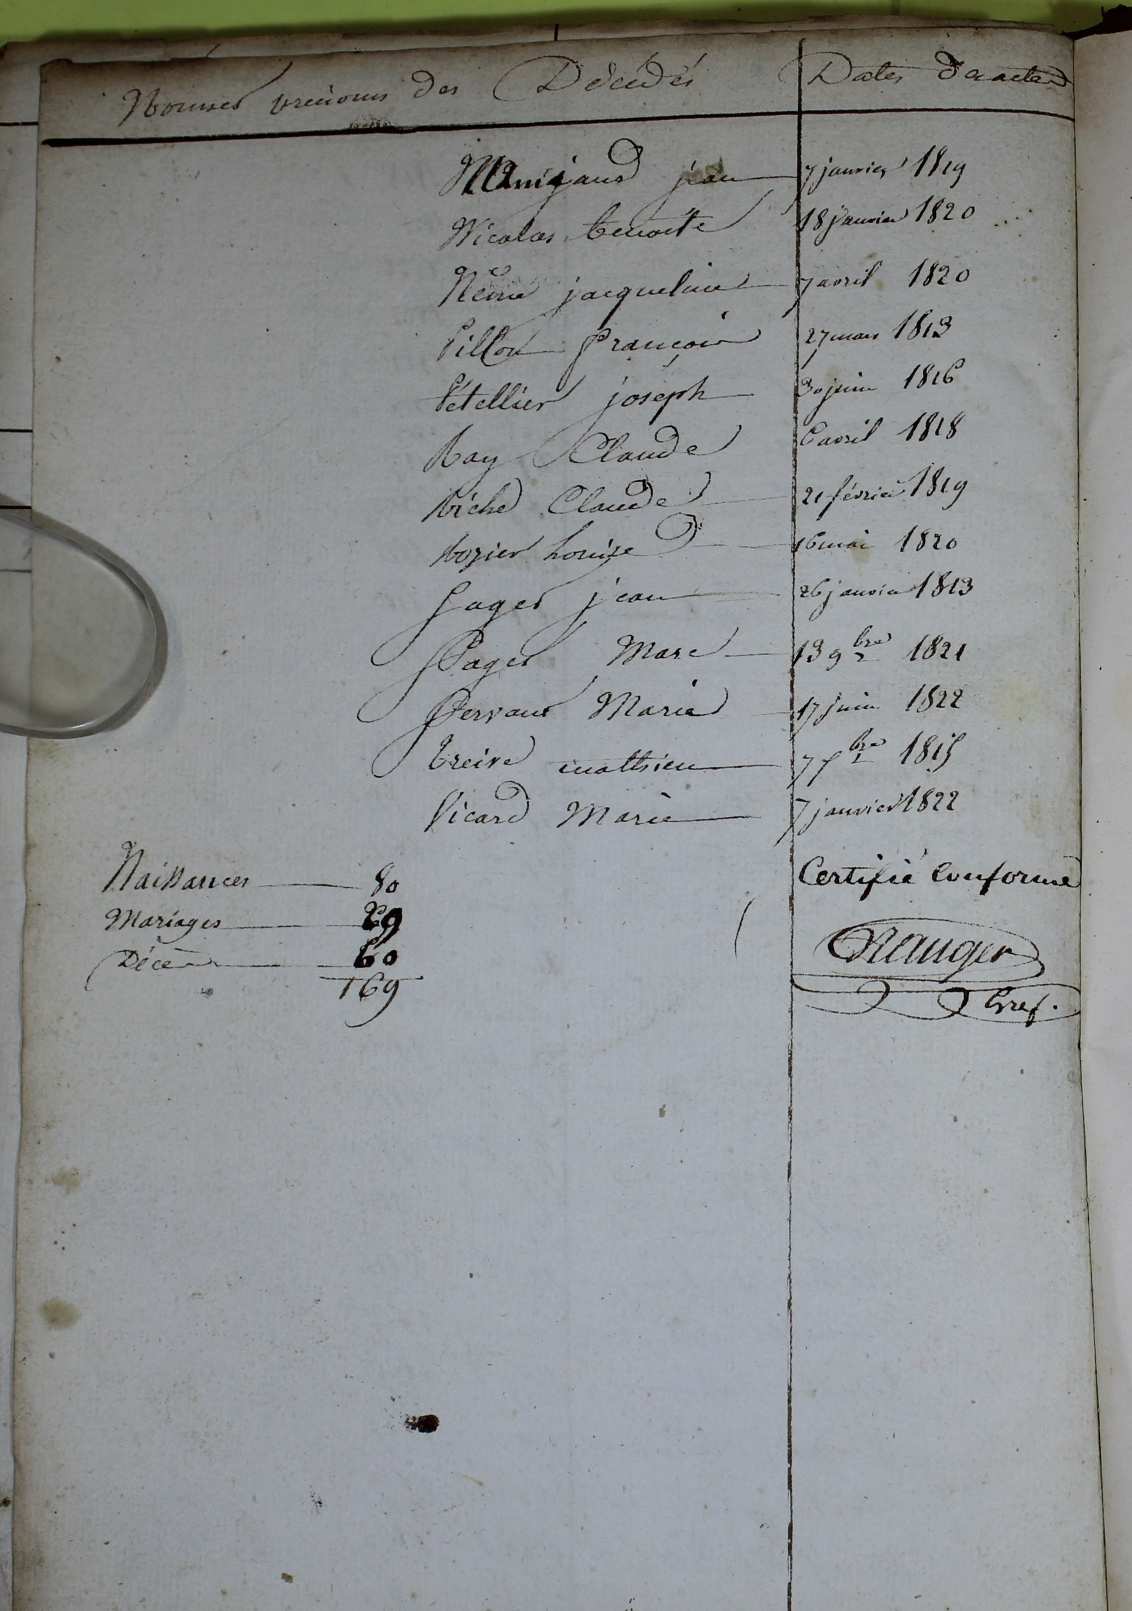 Noms et prenoms des Décédés Dates des actes
Manigaud jean 7 janvier 1819
Nicolas benoite 18 janvier 1820
Néron jacqueline 7 avril 1820
Pillon françois 27 mars 1813
Pétellier joseph 30 juin 1816
Ray Claude 6 avril 1818
Riche Claude 21 février 1819
Rozier Louise 16 mai 1820
Sages jean 26 janvier 1813
Sages Marc 13 9bre 1821
Servans Marie 17 juin 1822
treive mathieu 7 7bre 1815
Vicard Marie 7 janvier 1822
Naissances 80
Mariages 29
Décès 60
169
Certifié Conforme
Gref.